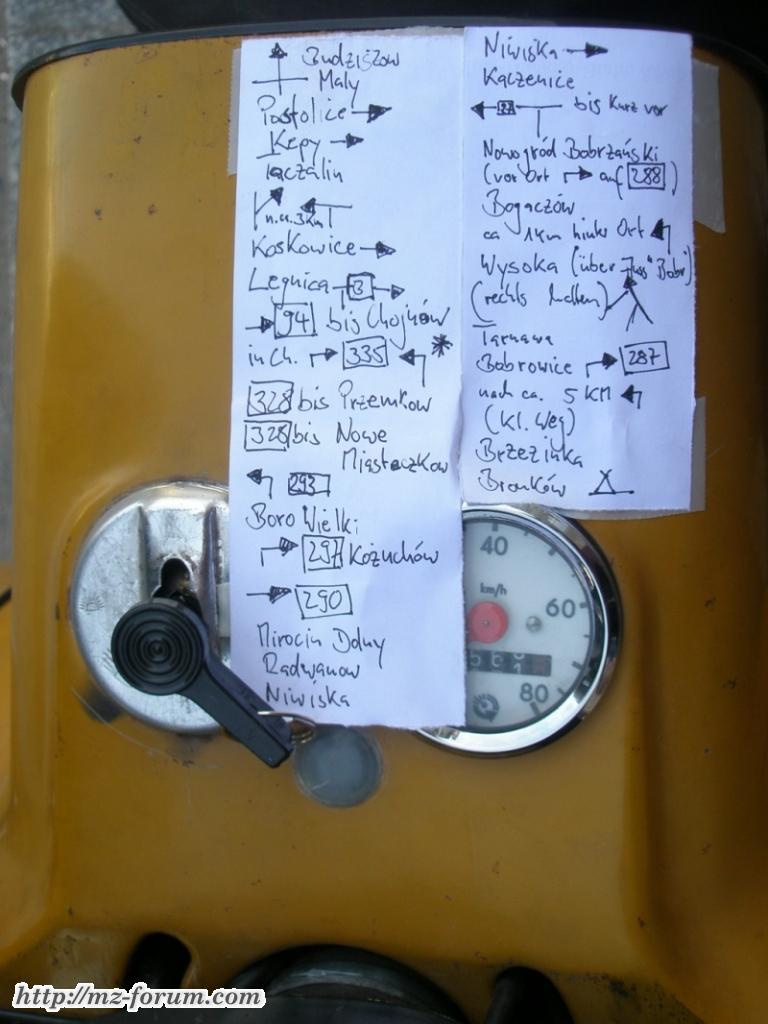 Budziszow
Maly
Postolice
Kępy
Taczalin
n.a. 3Km
Koskowice
Legnica 3
94 bis Chojnów
in Ch. 335 *
328 bis Przemkow
328 bis Nowe
Miasteczkow
293
Boro Wielki
297 Kożuchów
290
Mirocin Dolny
Radwanow
Niwiska
Niwiska
Kaczenice
27 bis Kurz vor
Nowogród Bobrzański
(vor Ort auf 288)
Bogaczów
ca 1km hinter Ort
Wysoka (über Fluss "Bobr)
(rechts halten)
Tarnawa
Bobrowice 287
nach ca. 5 KM
(Kl. Weg)
Brzezinka
Bronków
40
km/h
60
80
http://mz-forum.com